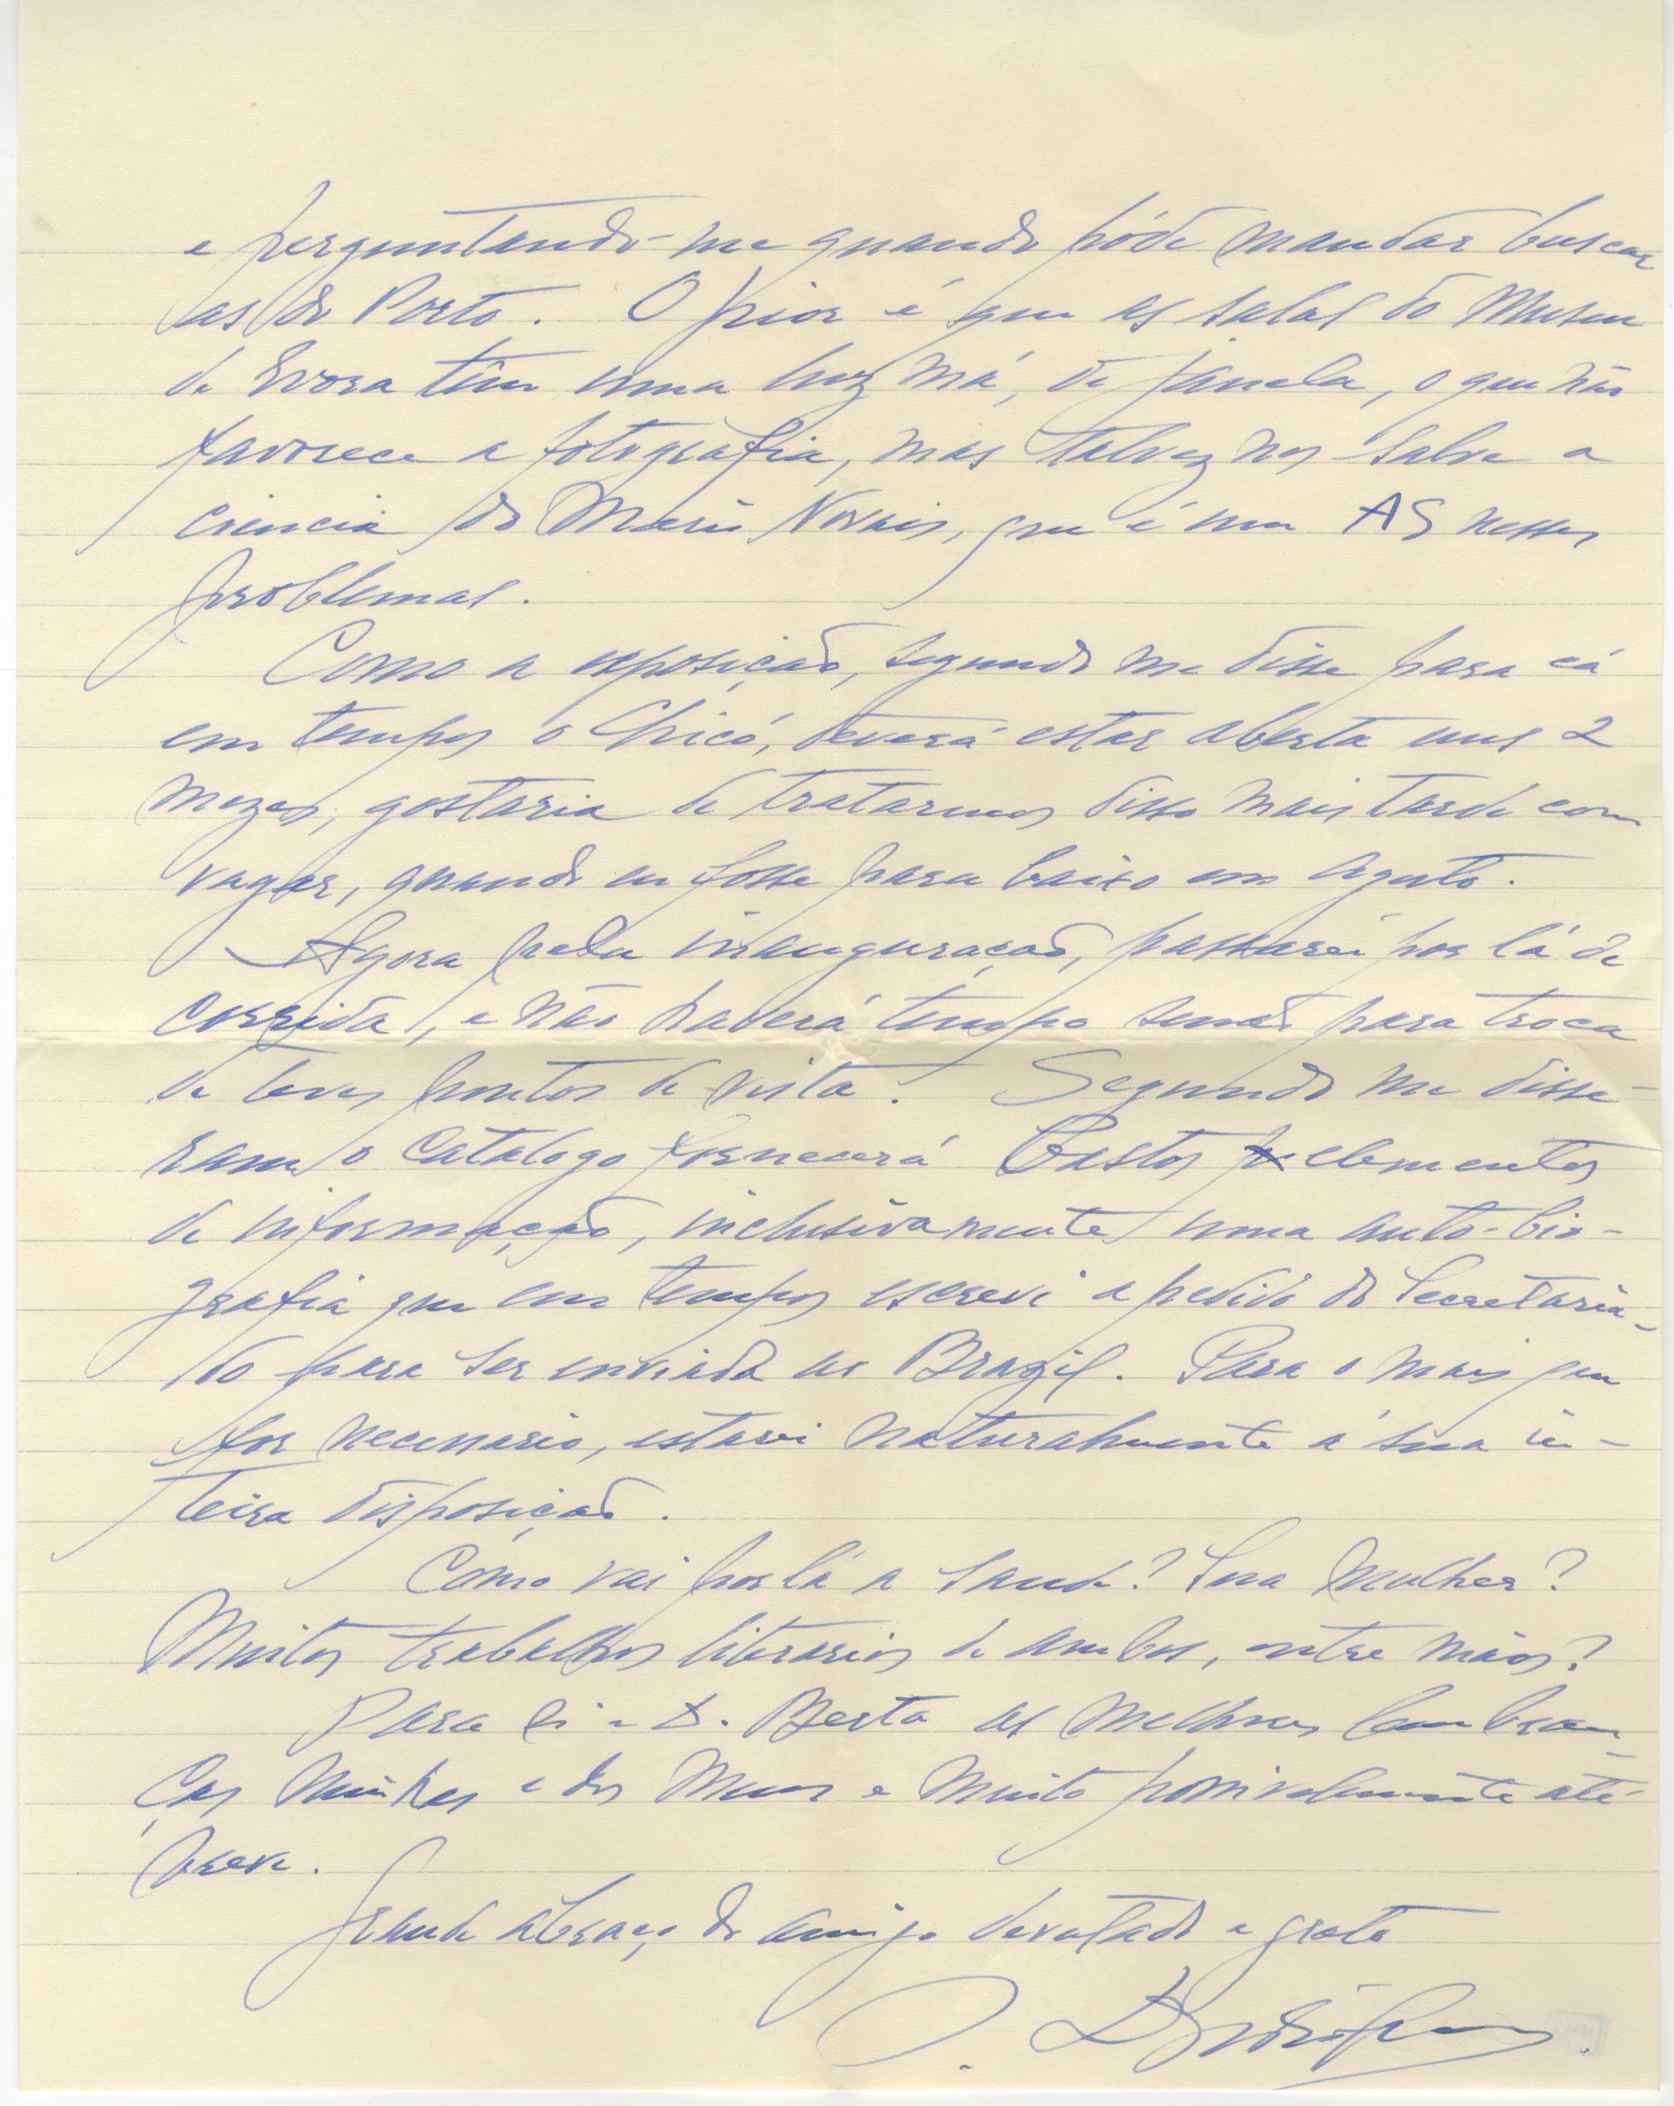 e perguntando-me quando póde mandar buscar
as do Porto. O pior é que as salas do Museu
de Evora têm uma luz má, de janela, o que não
favorece a fotografia, mas talvez nos salve a
ciencia do Mario Novais, que é um AS nesses
problemas.
Como a exposição, segundo me disse para cá
em tempos o Chicó, deverá estar aberta uns 2
mezes, gostaria de tratarmos disso mais tarde com
vagar, quando eu fosse para baixo em Agosto.
Agora pela inauguração, passarei por lá de
corrida, e não haverá tempo senão para troca
de leves pontos de vista. Segundo me disse-
ram o catalogo fornecerá bastos elementos
de informação, inclusivamente uma auto-bio-
grafia que em tempos escrevi a pedido do Secretaria-
do para ser enviada ao Brazil. Para o mais que
fôr necessario, estarei naturalmente á sua in-
teira disposição.
Como vai por lá a saude? Sua Mulher?
Muitos trabalhos literarios de ambos, entre mãos?
Para si e D. Berta as melhores lembran-
ças minhas e dos meus e muito possivelmente até
breve.
Grande abraço do amigo devotado e grato